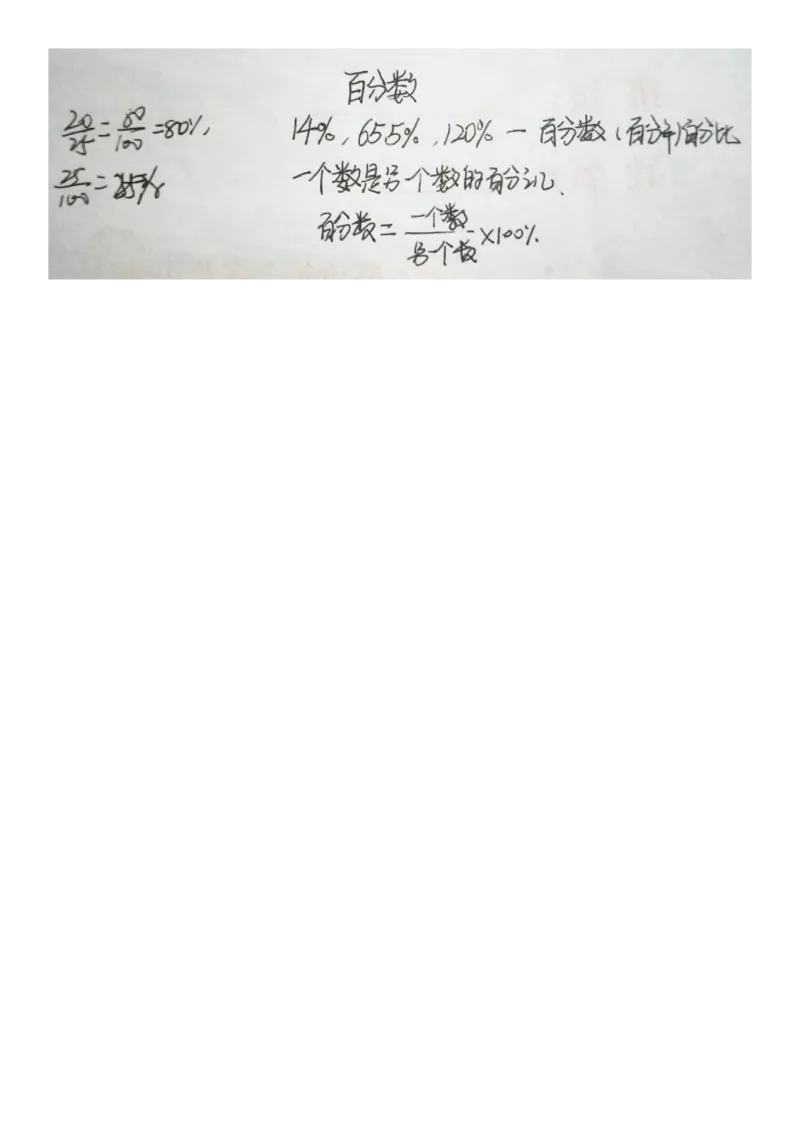 百分数
20/25=80/100=80%,
14%,65.5%,120%—百分数(百分率)百分比
25/100=25%
一个数是另一个数的百分比.
百分数=一个数/另一个数×100%.